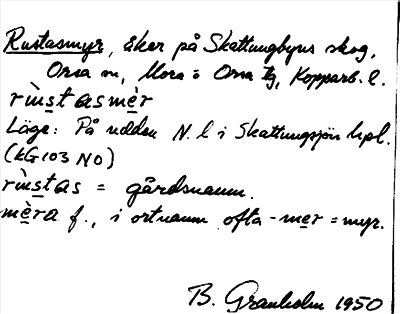 Rustasmyr, åker på Skattungbyns skog,
Orsa sn, Mora o Orsa tg, Kopparb. l.
rùstasmèr
Läge: På udden N. l i Skattungsjön hpl.
(kG 103 NO)
rùstas = gårdsnamn.
mèra f., i ortnamn ofta -mer = myr.
B. Granholm 1950